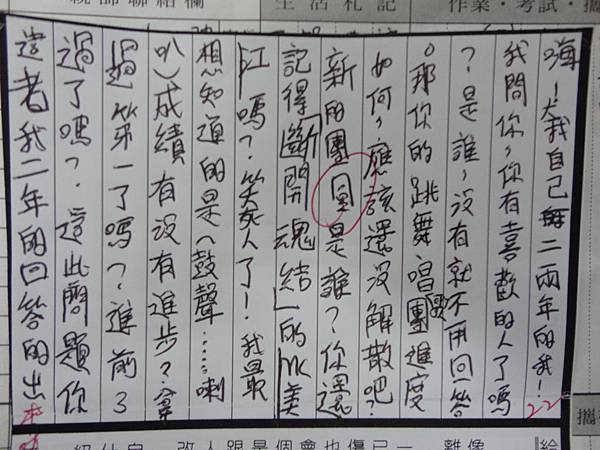 親師聯絡欄
生活札記
作業・考試・攜
嗨!大我自己二兩年的我!
我問你,你有喜歡的人了嗎
?是誰,沒有就不用回答
。那你的跳舞唱歌團進度
如何,應該還沒解散吧?
新的團員是誰?你還
記得「斷開魂結」的JK美
江嗎?笑死人了!我最
想知道的是(鼓聲……喇
叭)成績有沒有進步?拿
過第一了嗎?進前3
過了嗎?這些問題你
這者我二年的回答的出來
22
攜
給